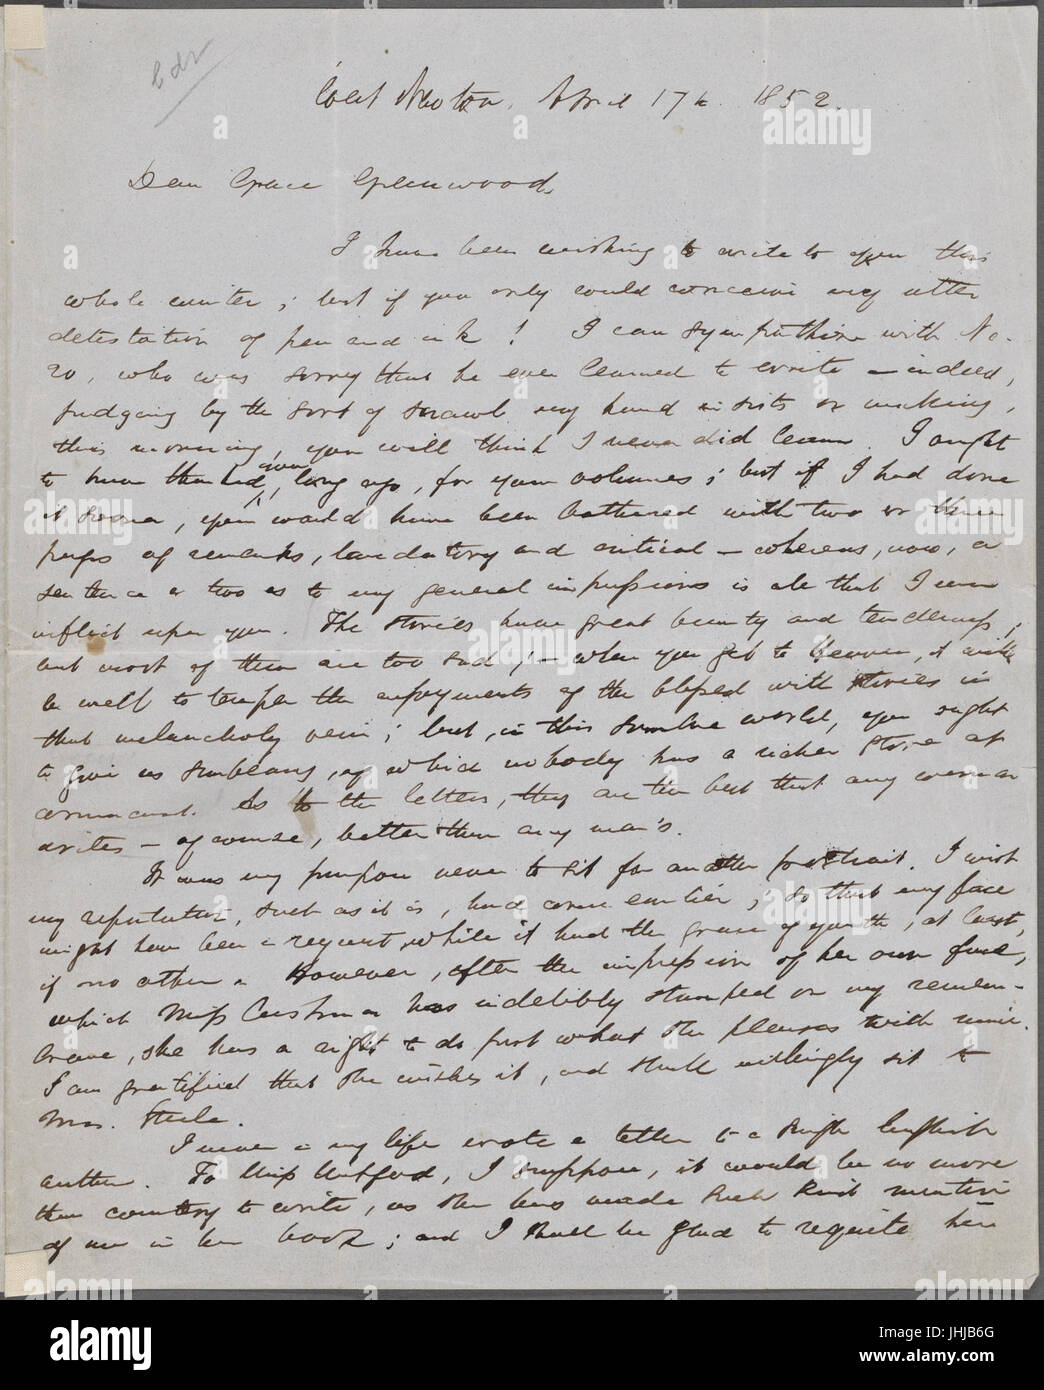 West Newton, April 17th 1852.
Dear Grace Greenwood,
I have been wishing to write to you this
whole winter; but if you only could conceive my utter
detestation of pen and ink! I can sympathize with No.
20, who was sorry that he ever learned to write — indeed,
judging by the sort of scrawl my hand insists on making,
this morning, you will think I never did learn. I ought
to have thanked you, long ago, for your volumes; but if I had done
it sooner, you would have been bothered with two or three
pages of remarks, laudatory and critical — whereas, now, a
sentence or two as to my general impressions is all that I can
inflict upon you. The stories have great beauty and tenderness;
but most of them are too sad; — when you get to Heaven, it will
be well to temper the enjoyments of the blessed with stories in
that melancholy vein; but, in this sombre world, you ought
to give us sunbeams, of which nobody has a richer store at
command. As to the letters, they are the best that any woman
writes — of course, better than any man's.
It was my purpose never to sit for another portrait. I wish
my reputation, such as it is, had come earlier; so that my face
might have been in request, while it had the grace of youth, at least,
if no other. However, after the impression of her own face,
which Miss Cushman has indelibly stamped on my remem-
brance, she has a right to do just what she pleases with mine.
I am gratified that she wishes it, and shall willingly sit to
Mrs. Steele.
I never in my life wrote a letter to a single English
author. To Miss Mitford, I suppose, it would be no more
than courtesy to write, as she has made such kind mention
of me in her book; and I shall be glad to requite her
alamy
Image ID: JHJB6G
www.alamy.com